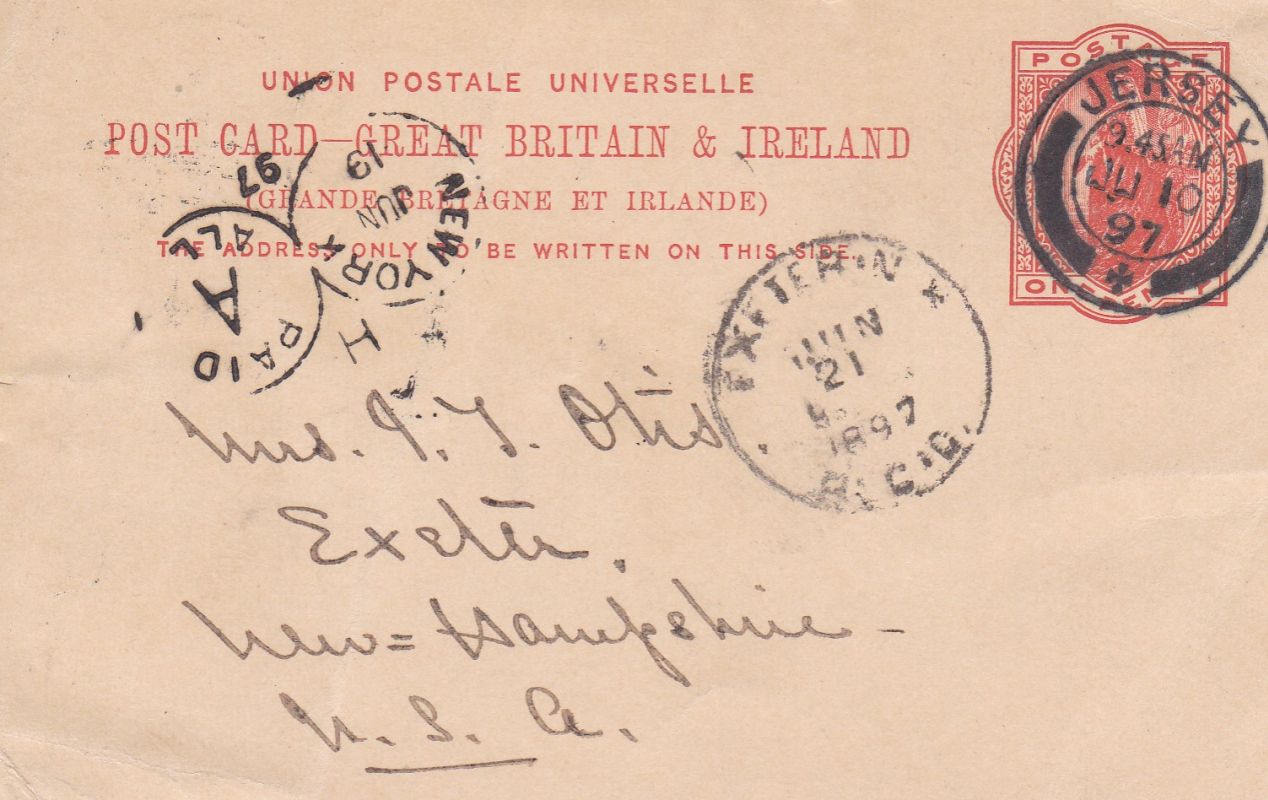 UNION POSTALE UNIVERSELLE
POST CARD—GREAT BRITAIN & IRELAND
(GRANDE BRETAGNE ET IRLANDE)
THE ADDRESS ONLY TO BE WRITTEN ON THIS SIDE.
POSTAGE
ONE PENNY
JERSEY
9.45AM
JU 10
97
NEW YORK
JUN
19
97
PAID
A
ALL
H
EXETER. N
JUN
21
1897
REC'D.
Mrs. I. T. Otis.
Exeter.
New=Hampshire-
U. S. A.